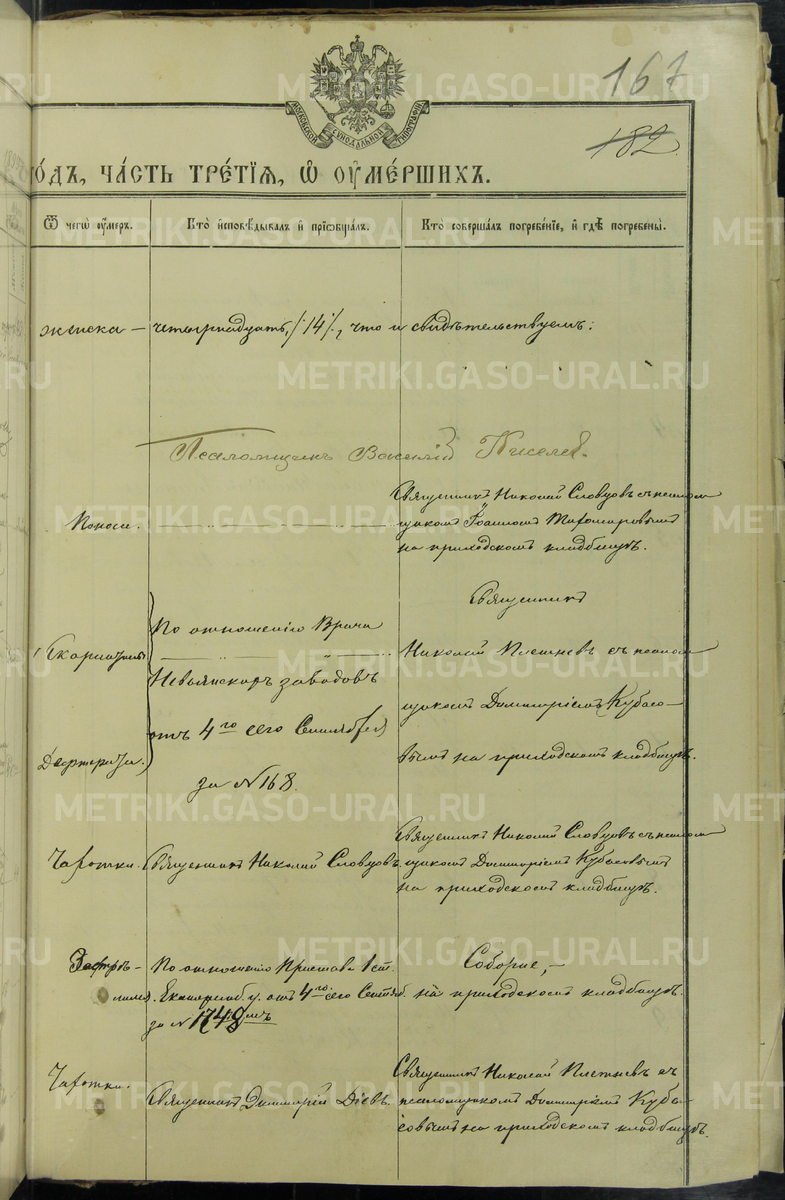 167
182
МОСКОВСКОЙ СѴНОДАЛЬНОЙ ТИПОГРАФІИ
го́дъ, ча́сть тре́тїѧ, ѡ҆ ᲂу҆ме́ршихъ.
Ѿ чегѡ̀ ᲂу҆́меръ.
Кто̀ и҆сповѣ́дывалъ и҆ прїѻбща́лъ.
Кто̀ соверша́лъ погребе́нїе, и҆ гдѣ̀ погребены̀.
женска — четырнадцать, /:14:/, что и свидѣтельствуемъ:
Псаломщикъ Василій Киселев.
Поноса.
Священникъ Николай Словцовъ съ псалом
щикомъ Іоанномъ Тихомировымъ
на приходскомъ кладбищѣ.
Скарлатины
Дифтерита.
По отношенію Врача
Невьянскихъ заводовъ
отъ 4го сего Сентября
за №168.
Священникъ
Николай Плетневъ съ псалом
щикомъ Димитріемъ Кубасо-
вымъ на приходскомъ кладбищѣ.
Чахотки.
Священникъ Николай Словцовъ.
Священникъ Николай Словцовъ съ псалом
щикомъ Димитріемъ Кубасовымъ
на приходскомъ кладбищѣ.
Застрѣ-
лился
По отношенію Пристава 1 ст.
Екатеринб. у. отъ 4го сего Сентяб.
за №
Соборне, —
на приходскомъ кладбищѣ.
Чахотки.
Священникъ Димитрій Діевъ.
Священникъ Николай Плетневъ съ
псаломщикомъ Димитріемъ Куба-
совымъ на приходскомъ кладбищѣ.
METRIKI.GASO-URAL.RU